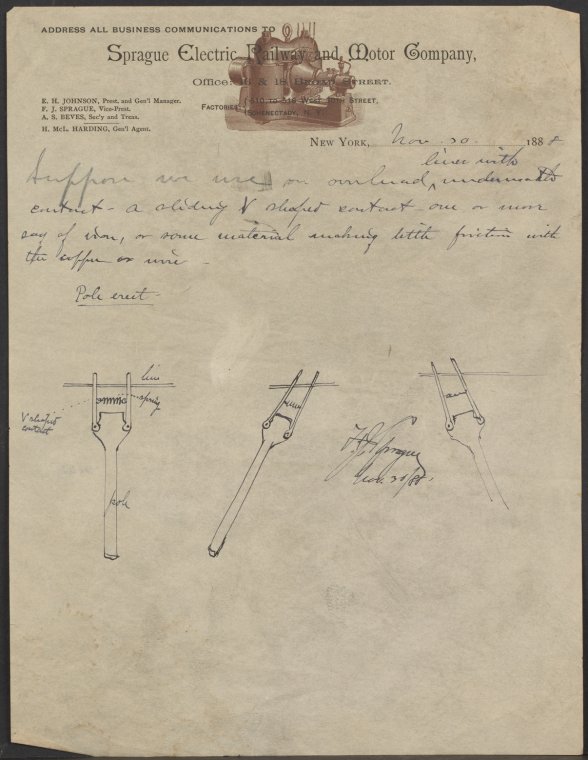 ADDRESS ALL BUSINESS COMMUNICATIONS TO
Sprague Electric Railway and Motor Company,
Office: 16 & 18 Broad Street.
E. H. JOHNSON, Prest. and Gen'l Manager.
F. J. SPRAGUE, Vice-Prest.
A. S. BEVES, Sec'y and Treas.
H. McL. HARDING, Gen'l Agent.
FACTORIES: 510 TO 518 WEST 30TH STREET,
SCHENECTADY, N. Y.
NEW YORK, Nov. 30 1888
lines with
Suppose we use on overhead underneath
contact - a sliding V shaped contact one or more
say of iron, or some material making little friction with
the copper or wire -
Pole erect -
line
spring
V shaped
contact
pole
F J Sprague
Nov. 30/88.